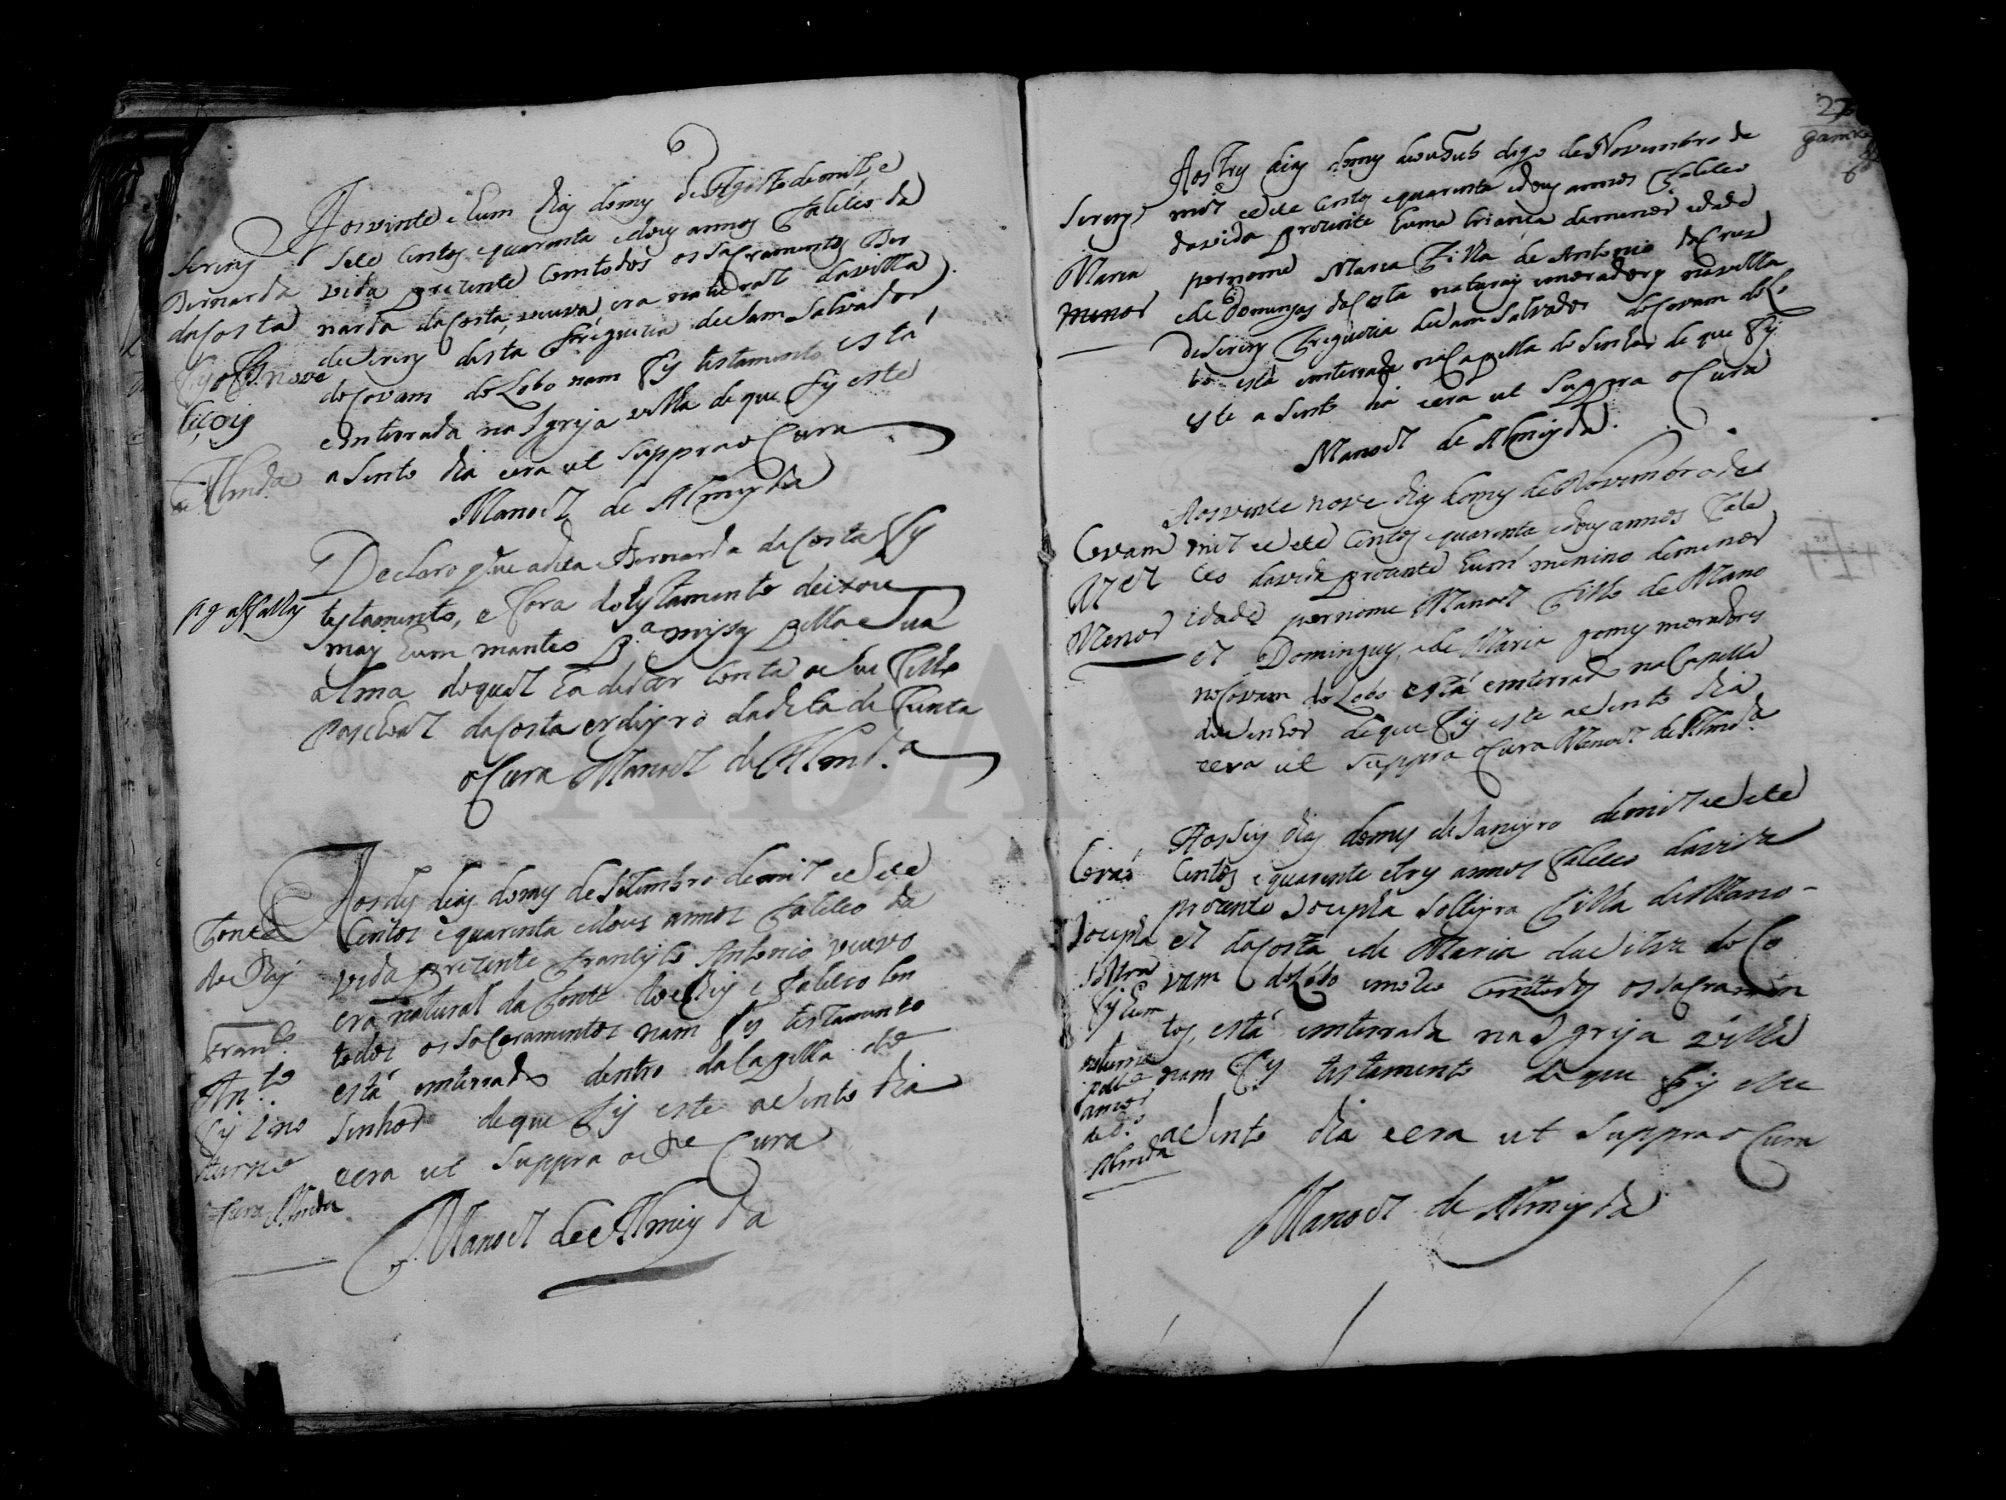 Aos vinte e hum dias do mes de Agosto de mil e
sete centos e quarenta e dous annos faleceo da
vida prezente com todos os sacramentos Ber
narda da Costa, veuva, era natural da villa
de Sereng desta freiguezia de Sam Salvador
do Covam do Lobo nam fes testamento está
enterrada na Igreja velha de que fis este
asento dia e era ut suppra o Cura
Manoel de Almeyda
Sereng
Bernarda
da Costa
fis off nove
liçois
Almda
Declaro que a dita Bernarda da Costa fes
testamento, e fora do testamento deixou
mais hum manteo p.a missas pella sua
alma do qual ha de dar conta o seu filho
Paschoal da Costa erdeyro da dita defunta
o Cura Manoel de Almd.a
Aos des dias do mes de Setembro de mil e sete
centos e quarenta e dous annos faleceo da
vida prezente Francisco Antonio veuvo
era natural da Fonte do e faleceo com
todos os sacramentos nam fes testamento
está enterrado dentro da Capella do
Senhor de que fis este asento dia
e era ut suppra o Cura
Manoel de Almeyda
Fonte
Franc.o
Ant.o
fis 1 no
turno
Cura Almda
27
Aos tres dias do mes de outub digo de Novembro de
mil e sete centos e quarenta e dous annos faleceo
da vida prezente huma criança de menor idade
per nome Maria filha de Antonio da Crus
e de Domingas da Costa naturais e moradores na villa
de Sereng freiguezia de Sam Salvador do Covam do Lo
bo está enterrada na Capella do Senhor de que fis
este asento dia e era ut suppra o Cura
Manoel de Almeyda.
Sereng
Maria
menor
Aos vinte nove dias do mes de Novembro de
mil e sete centos e quarenta e dous annos fale
ceo da vida prezente hum menino de menor
idade per nome Manoel filho de Mano
el Domingues, e de Maria Gomes moradores
no Covam do Lobo está enterrado na Capella
do Senhor de que fis este asento dia
e era ut suppra o Cura Manoel de Almd.a
Covam
Mel
Menor
Aos seis dias do mes de Janeyro de mil e sete
centos e quarenta e tres annos faleceo da vida
prezente Josepha solteyra filha de Mano-
el da Costa e de Maria da Silva do Co
vam do Lobo e moreo com todos os sacramen
tos, está enterrada na Igreja velha
nam fes testamento de que fis este
asento dia e era ut suppra o Cura
Manoel de Almeyda
Covão
Josepha
soltra
fis hum
noturno
pello
amor
de D.s
Almda
ADAVR